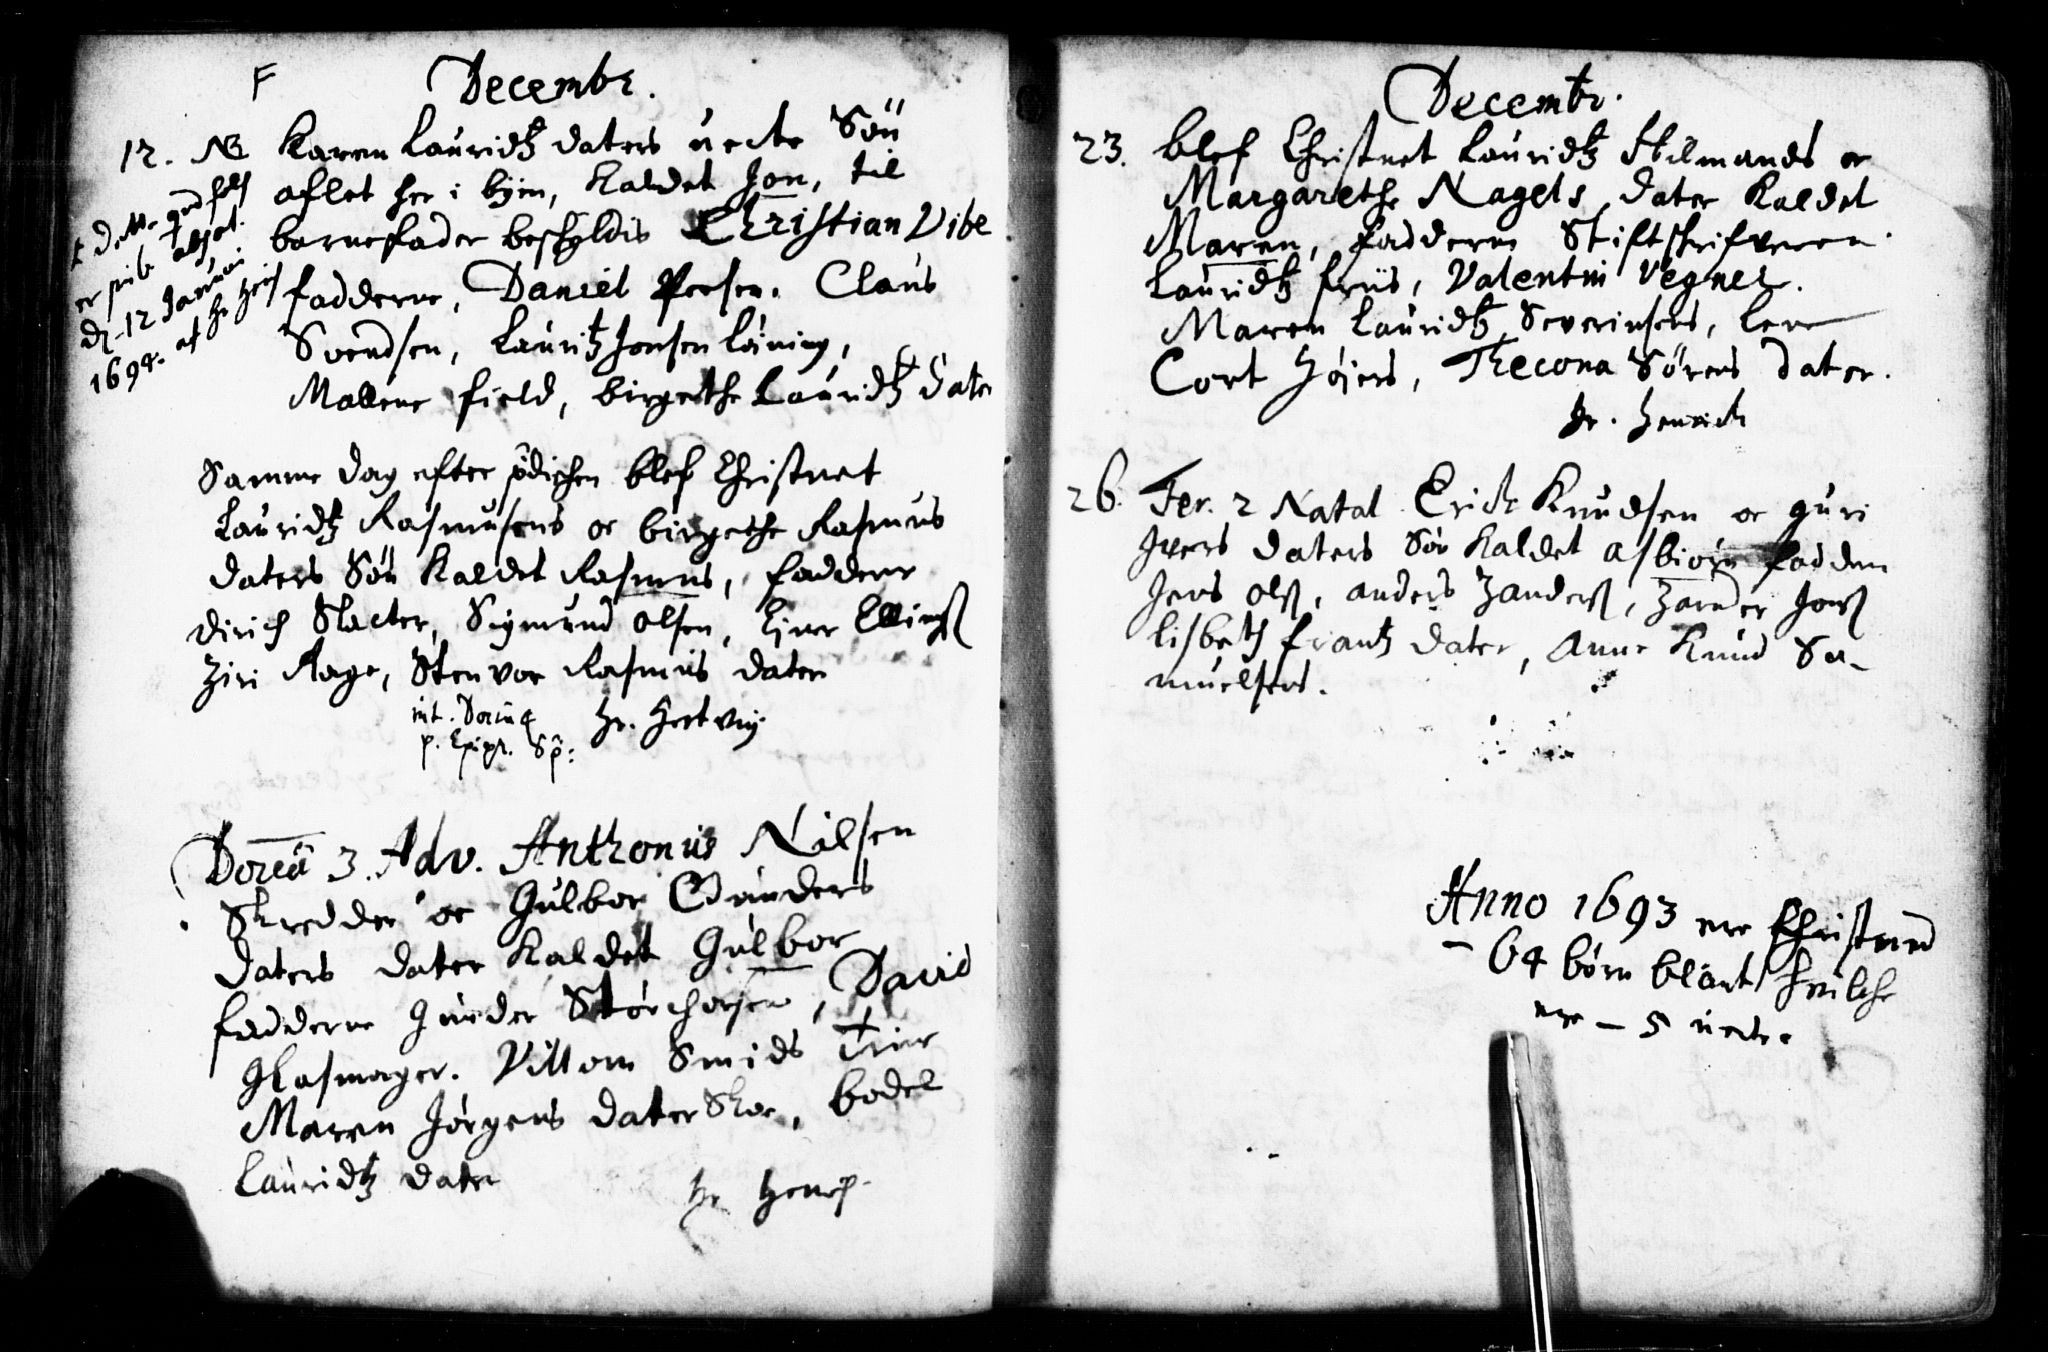 F
Decembr.
12. NB Karen Lauridtz daters uecte Søn
aflet her i byen, Kaldet Jon, til
barnefader beskyldis Christian Vibe
fadderne, Daniel Persen. Claus
Svendsen, Lauritz Jonsen Löining,
Mallene field, birgethe Lauridtz dater
er publ
d. 12 Januari
1694. af Hr
Samme dag efter prædichen blef Christnet
Lauridtz Rasmusens oc birgethe Rasmus
daters Søn Kaldet Rasmus, fadderne
Dirich Slacter, Sigmund olsen, Ejner Ellingß
Ziri Aage, Stenvor Rasmus dater
int. Dorin
p. Epiph. Hr. Hertvig
Domca 3. Adv. Anthonius Nilsen
Skredder oc Gulbor Gunders
daters dater Kaldet Gulbor
fadderne Gunder Storchorsen, David
Glasmager. Villom Smids Trine
Maren Jörgens dater Skoe, bodel
Lauridtz dater
Hr Henr.
Decembr.
23. blef Christnet Lauridtz Stilmands oc
Margarethe Nagels dater Kaldet
Maren, fadderne Stiftskrifveren
Lauridtz friis, Valentin Vegner.
Maren Lauridtz Severinsens, Lene
Cort Höiers, Thecona Sørens dater.
Hr. Henrich
26. Fer. 2 Natal Erich Knudsen oc guri
Ivers daters Søn Kaldet asbiörn fadderne
Jens olß, anders Zanderß, Zander Jonß
lisbeth frantz dater, Anne Knud Sa-
muelsens.
Anno 1693 ere Christned
- 64 börn blant hvilche
ere - 5 uecte.